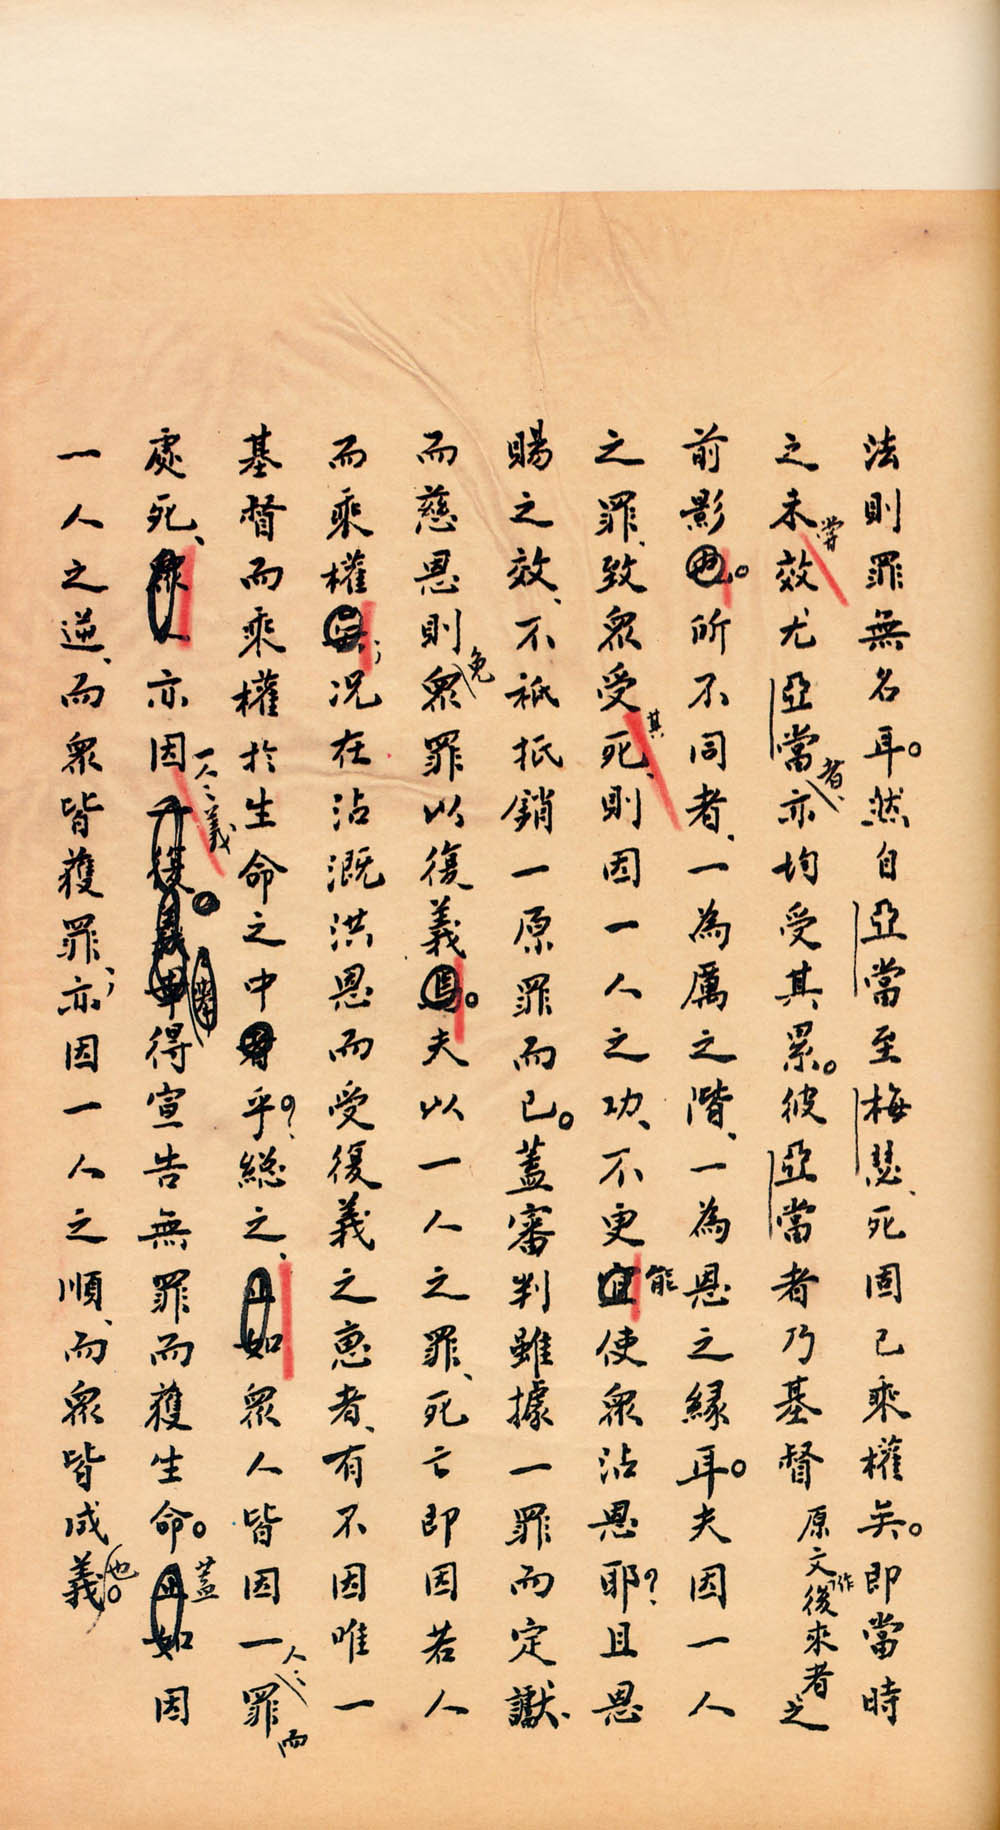 法則罪無名耳。然自亞當至梅瑟、死固已乘權矣。即當時
之未嘗效尤亞當者、亦均受其累。彼亞當者乃基督原文作後來者之
前影也。所不同者、一為厲之階、一為恩之緣耳。夫因一人
之罪、致眾受其死、則因一人之功、不更能使眾沾恩耶？且恩
賜之效、不祇抵銷一原罪而已。蓋審判雖據一罪而定讞、
而慈恩則免眾罪以復義焉。夫以一人之罪、死亡即因若人
而乘權矣；況在沾溉洪恩而受復義之惠者、有不因唯一
基督而乘權於生命之中者乎？總之、正如眾人皆因一人之罪而
處死、眾人亦因一人之義。得宣告無罪而獲生命。蓋正如因
一人之逆、而眾皆獲罪；亦因一人之順、而眾皆成義也。